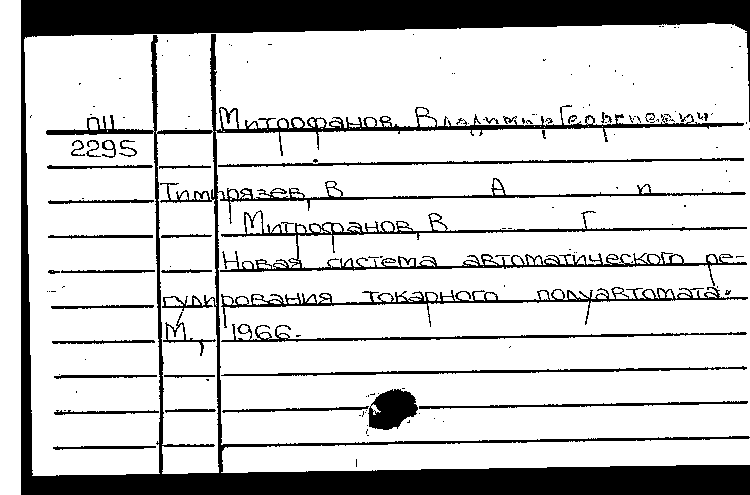 ОП Митрофанов, Владимир Георгиевич
2295
Тимирязев, В А п
Митрофанов, В Г
Новая система автоматического ре-
гулирования токарного полуавтомата.
М., 1966.